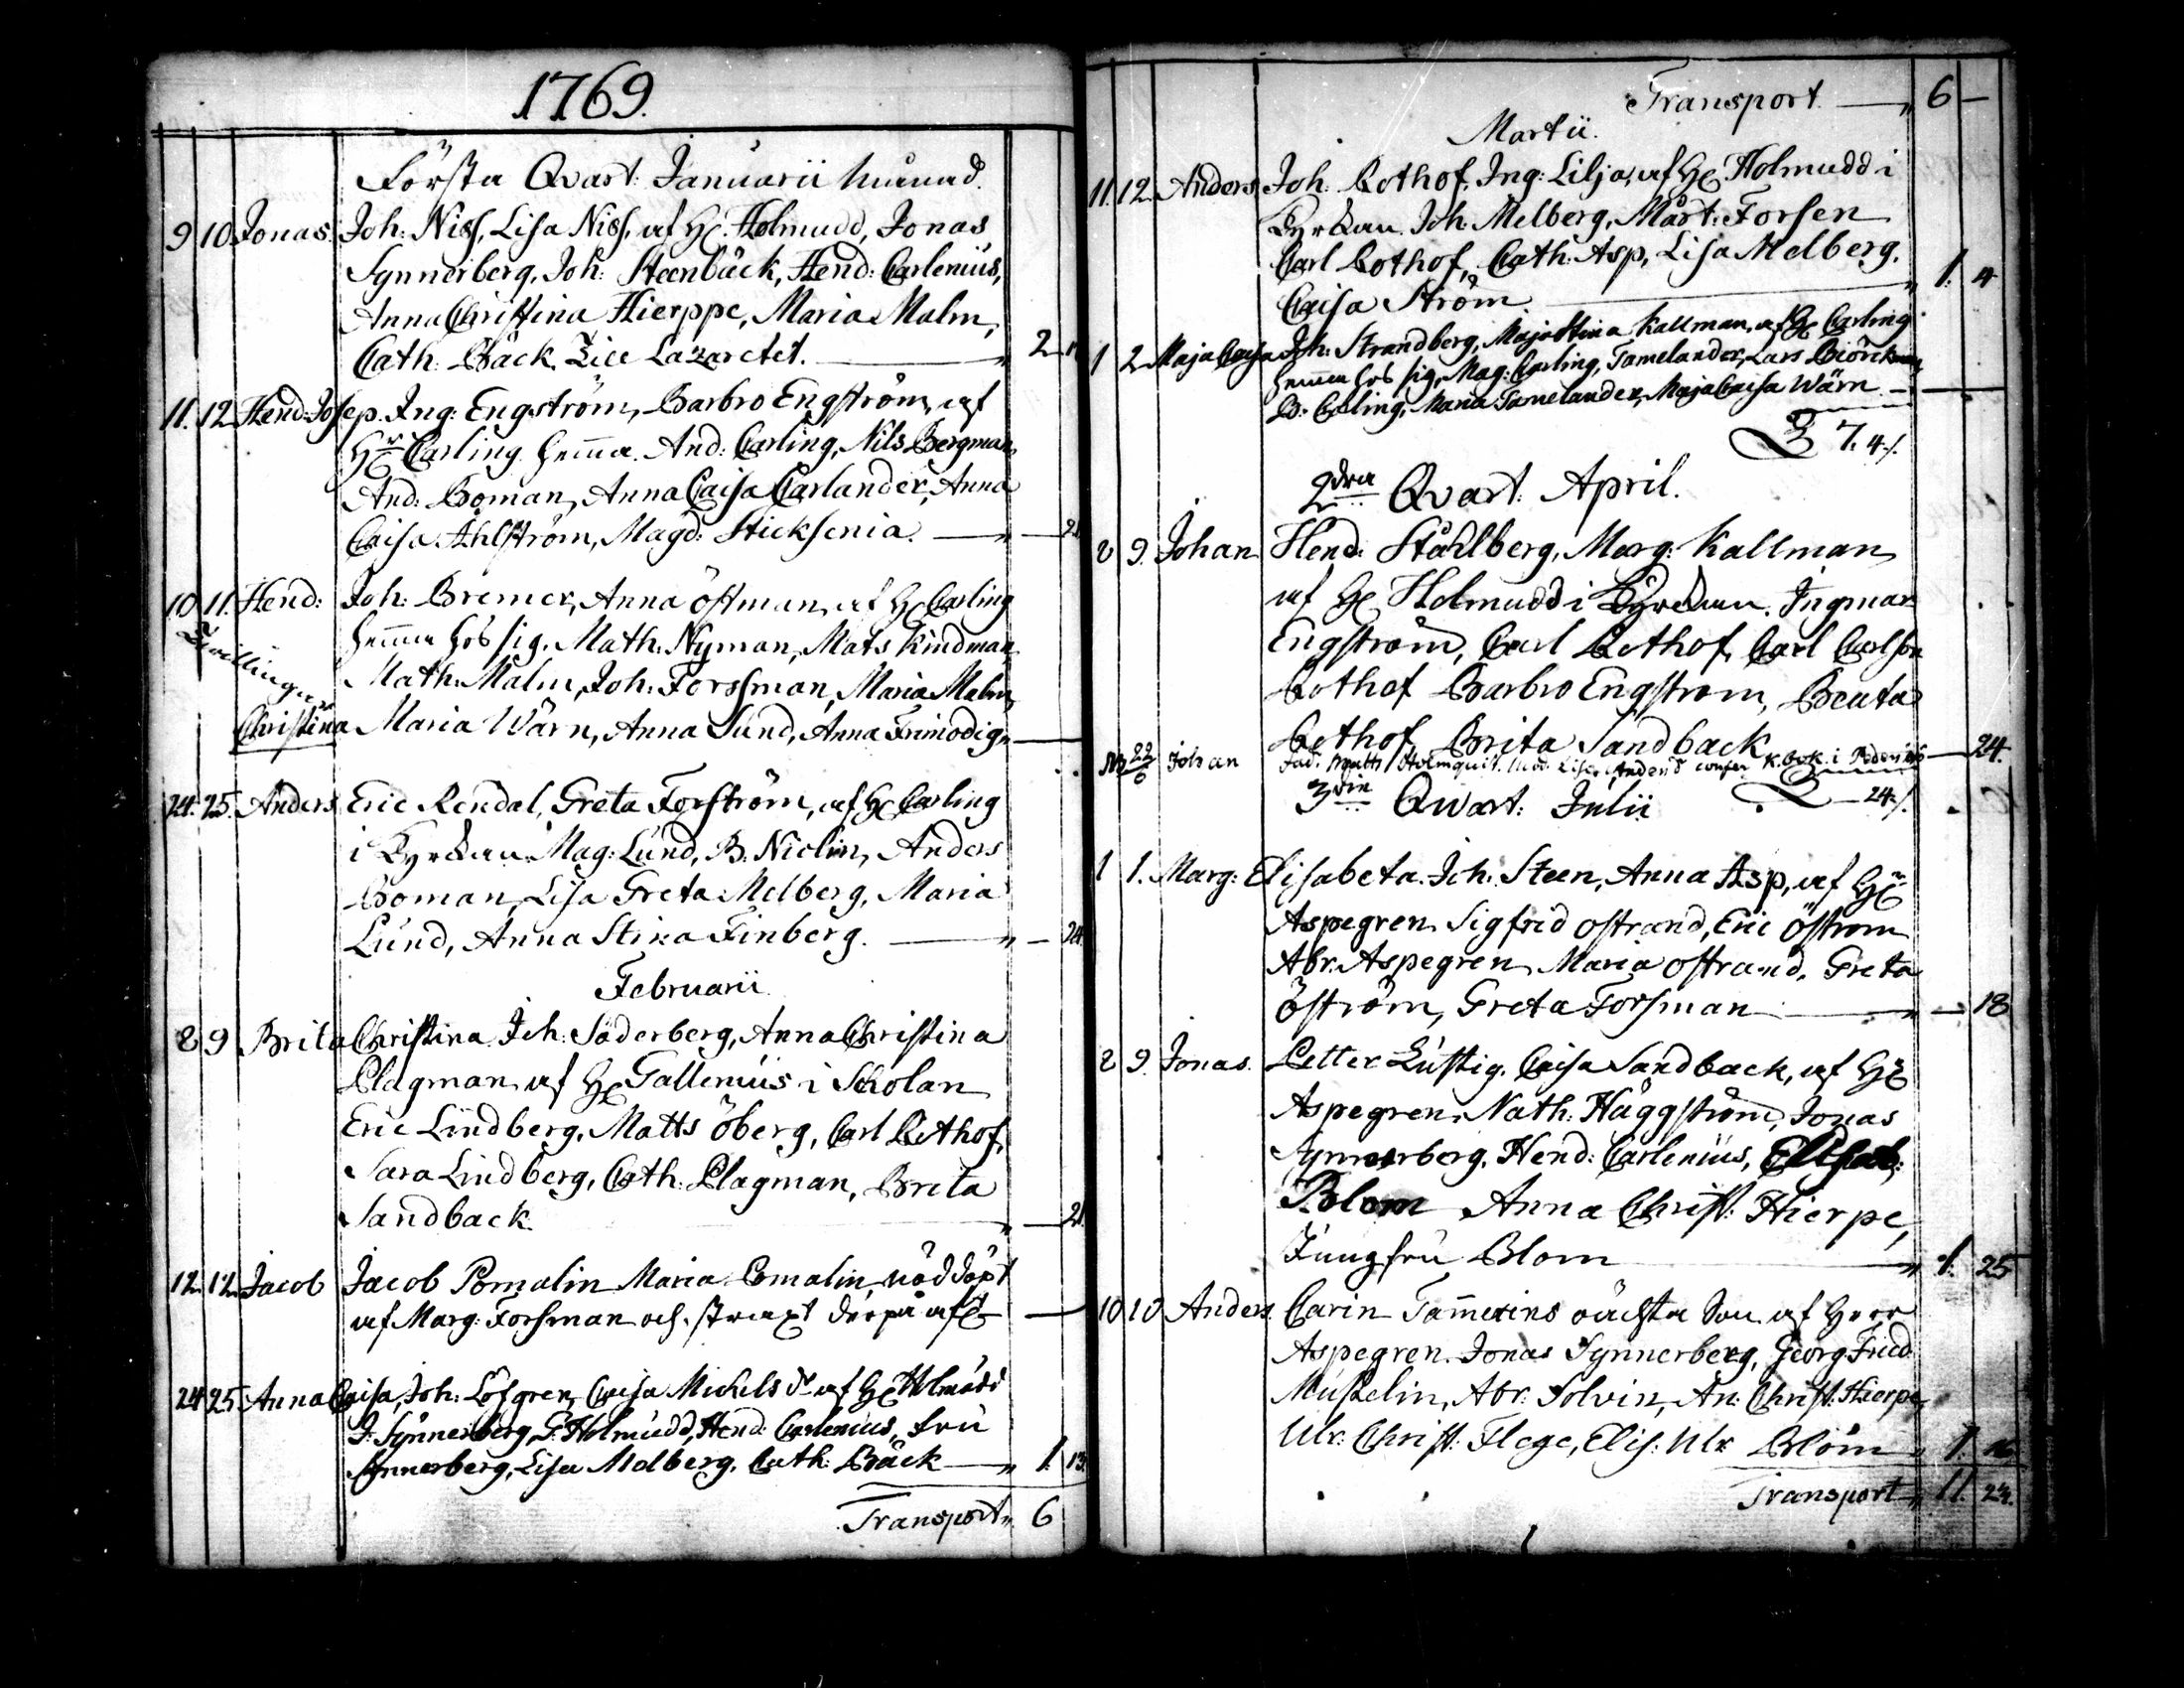 1769.
Första Qvart: Januarii månad.
9 10 Jonas. Joh: Niss, Lisa Niss, af H. Holmudd, Jonas
Synnerberg, Joh: Steenbäck, Hend: Carlenius,
Anna Christina Hierppe, Maria Malm,
Cath: Bäck. Till Lazaretet. — " 2
11. 12 Hend: Josep. Ing: Engström, Barbro Engström, af
Hr Carling hemma. And: Carling, Nils Bergman,
And: Boman, Anna Caisa Carlander, Anna
Caisa Ahlström, Magd: Sticksenia. — " —
10 11. Hend: Joh: Bremer, Anna Östman, af H. Carling
Tvillingar
hemma hos sig. Math: Nyman, Mats Kindman,
Math: Malm, Joh: Forssman, Maria Malm,
Christina Maria Wärn, Anna Lund, Anna Frimodig "—
24. 25. Anders Eric Rendal, Greta Forström, af H. Carling
i Kyrckan. Mag: Lund, B: Niclin, Anders
Boman, Lisa Greta Melberg, Maria
Lund, Anna Stina Finberg. — " — 24.
Februarii
8 9 Brita Christina. Joh: Söderberg, Anna Christina
Plagman af H. Gallenius i Scholan
Eric Lindberg, Matts Öberg, Carl Rothof,
Sara Lindberg, Cath: Plagman, Brita
Sandback. — " — 21
12. 12. Jacob Jacob Pomalin Maria Pomalin, nöddöpt
af Marg: Forsman och straxt derpå —
24 25 Anna Caisa, Joh: Löfgren, Caisa Michelsdr af H. Holmudd
J: Synnerberg, G: Holmudd, Hend: Carlenius, Fru
Synnerberg, Lisa Melberg, Cath: Bäck — " 1. 13.
Transport " 6
Transport — " 6 —
Martii.
11. 12. Anders Joh: Rothof, Ing: Lilja, af H. Holmudd i
Kyrckan. Joh: Melberg, Märt: Forsen
Carl Rothof, Cath: Asp, Lisa Melberg,
Caisa Ström — " 1. 4
1 2 Maja Caisa Joh: Strandberg, Maja Stina Kallman, af H. Carling
hemma hos sig, Mag: Carling, Tamelander, Lars Biörckman,
B: Carling, Maria Tamelander, Maja Caisa Wärn — —
7. 4./.
2dra Qvart: April.
8 9. Johan Hend: Ståhlberg, Marg: Kallman
af H. Holmudd i Kyrckan. Ingmar
Engström, Carl Rothof, Carl Carlson
Rothof Barbro Engström, Beata
Rothof Brita Sandback
22/6 Johan Fad: Matts Holmquist. Mod: Lisa confer K. Bok i — 24.
3die Qvart: Julii — 24./.
1 1. Marg: Elisabeta. Joh: Steen, Anna Asp, af Hr
Aspegren Sigfrid Ostrand, Eric Öström
Abr: Aspegren Maria Ostrand, Greta
Öström, Greta Forsman — " — 18
8 9. Jonas. Petter Lustig. Caisa Sandback, af Hr
Aspegren. Nath: Häggström, Jonas
Synnerberg. Hend: Carlenius, Elisab:
Blom Anna Christ: Hierpe,
Jungfru Blom — " 1. 25
10 10 Anders. Carin Tammelins oächta Son af Herr
Aspegren. Jonas Synnerberg, Georg Fried:
Muskelin, Abr: Solvin, An: Christ: Hierpe,
Ulr: Christ: Flege, Elis: Ulr: Blom " 1. 16
Transport " 11. 24.